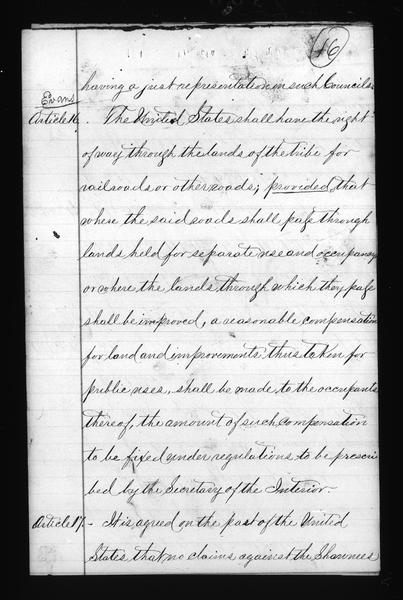 46
having a just representation in such Councils.
Evans
Article 16. The United States shall have the right
of way through the lands of the tribe for
railroads or other roads; provided, that
where the said roads shall pass through
lands held for separate use and occupancy
or where the lands through which they pass
shall be improved, a reasonable compensation
for land and improvements thus taken for
public uses, shall be made to the occupants
thereof, the amount of such compensation
to be fixed under regulations to be prescri
bed by the Secretary of the Interior.
Article 17. - It is agreed on the part of the United
States that no claims against the Shawnees